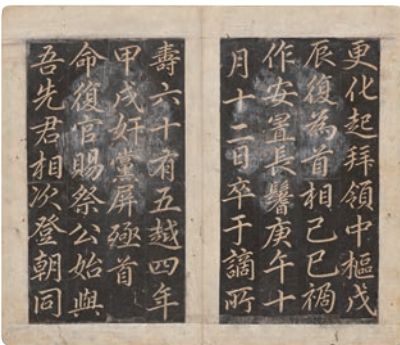 更化起拜領中樞戊
辰復為首相己巳禍
作安置長鬐庚午十
月十二日卒于謫所
壽六十有五越四年
甲戌奸黨屛殛首
命復官賜祭公始與
吾先君相次登朝同